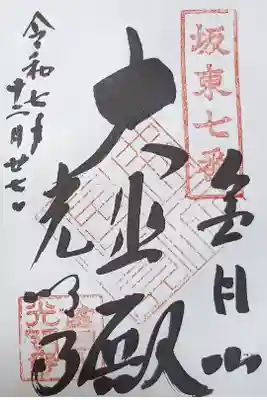 坂東七番
金目山
大悲殿
光明寺
令和七年
十一月廿七日